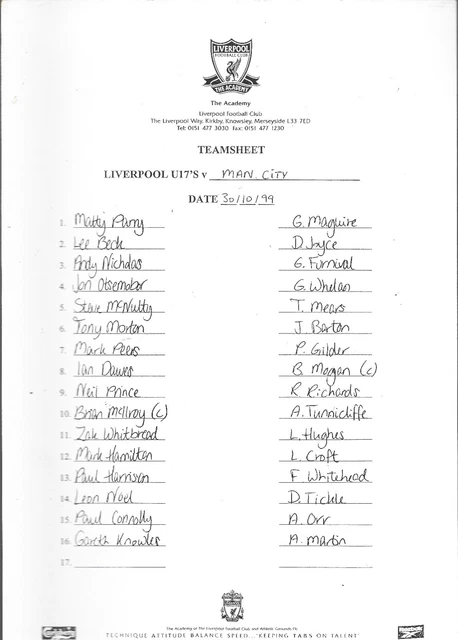 LIVERPOOL
FOOTBALL CLUB
THE ACADEMY
The Academy
Liverpool Football Club
The Liverpool Way, Kirkby, Knowsley, Merseyside L33 7ED
Tel: 0151 477 3030 Fax: 0151 477 1230
TEAMSHEET
LIVERPOOL U17'S v MAN. CITY
DATE 30/10/99
1. Matty Parry G. Maguire
2. Lee Beck D. Joyce
3. Andy Nicholas G. Furnival
4. Jon Otsemobor G. Whelan
5. Steve McNulty T. Mears
6. Tony Morton J. Barton
7. Mark Peers P. Gilder
8. Ian Dawes B. Morgan (c)
9. Neil Prince R Richards
10. Brian McIlroy (c) A. Tunnicliffe
11. Zak Whitbread L. Hughes
12. Mark Hamilton L. Croft
13. Paul Harrison F Whitehead
14. Leon Noel D. Tickle
15. Paul Connolly A. Orr
16. Gareth Knowles A. Martin
17.
The Academy at The Liverpool Football Club and Athletic Grounds Plc
TECHNIQUE ATTITUDE BALANCE SPEED... "KEEPING TABS ON TALENT"